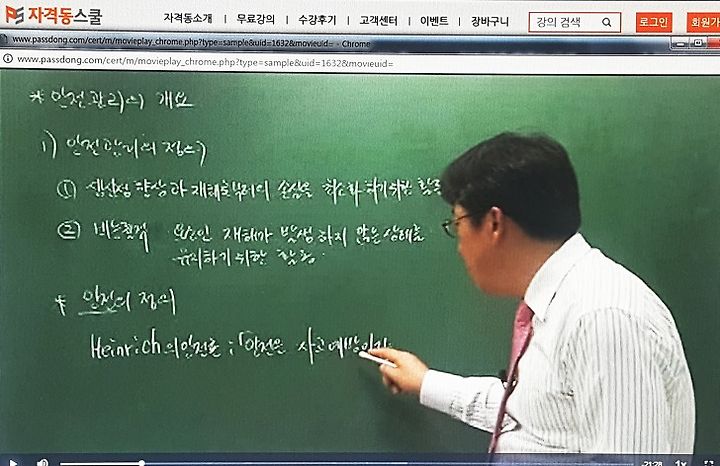 자격동스쿨
자격동소개 | 무료강의 | 수강후기 | 고객센터 | 이벤트 | 장바구니
강의 검색
로그인
회원가
www.passdong.com/cert/m/movieplay_chrome.php?type=sample&uid=1632&movieuid= - Chrome
www.passdong.com/cert/m/movieplay_chrome.php?type=sample&uid=1632&movieuid=
* 안전관리의 개요
1) 안전관리의 정의
① 생산성 향상과 재해로부터의 손실을 최소화 하기위한 활동
② 비능률적 요소인 재해가 발생하지 않는 상태를
유지하기 위한 활동.
* 안전의 정의
Heinrich의 안전론 : 「안전은 사고예방이다
21:28
1x